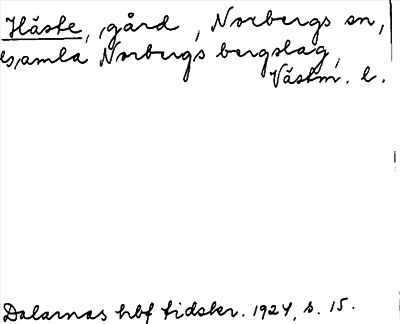 Häste, gård, Norbergs sn,
Gamla Norbergs bergslag,
Västm. l.
Dalarnas hbf tidskr. 1924, s. 15.